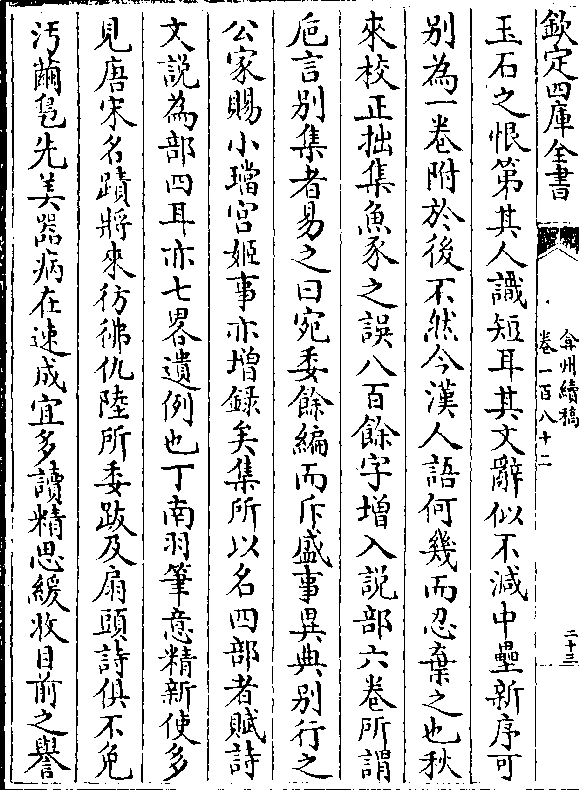 欽定四庫全書
弇州續稿
卷一百八十二
二十三
玉石之恨第其人識短耳其文辭似不減中壘新序可
别為一卷附於後不然今漢人語何幾而忍棄之也秋
來校正拙集魚豕之誤八百餘字增入説部六卷所謂
巵言别集者易之曰宛委餘編而斥盛事異典别行之
公家賜小璫宫姬事亦增録矣集所以名四部者賦詩
文説為部四耳亦七畧遺例也丁南羽筆意精新使多
見唐宋名蹟將來彷彿仇陸所委跋及扇頭詩俱不免
汚薾皃先美噐病在速成宜多讀精思緩收目前之譽